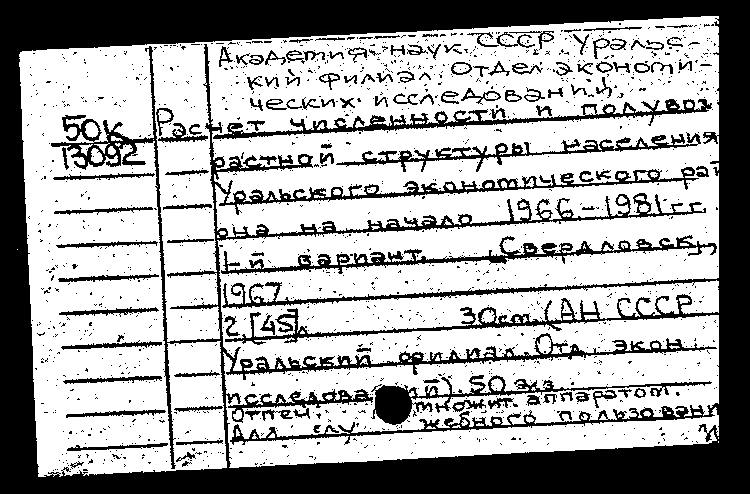 Академия наук СССР Уральс-
кий филиал. Отдел экономи-
ческих исследований.
50к
13092
Расчет численности и полувоз-
растной структуры населения
Уральского экономического рай
она на начало 1966-1981 гг.
1-й вариант. [Свердловск],
1967.
2, [45] л 30 см. (АН СССР
Уральский филиал. Отд. экон.
исследова ний). 50 экз.
Отпеч. множит. аппаратом.
Для слу жебного пользовани